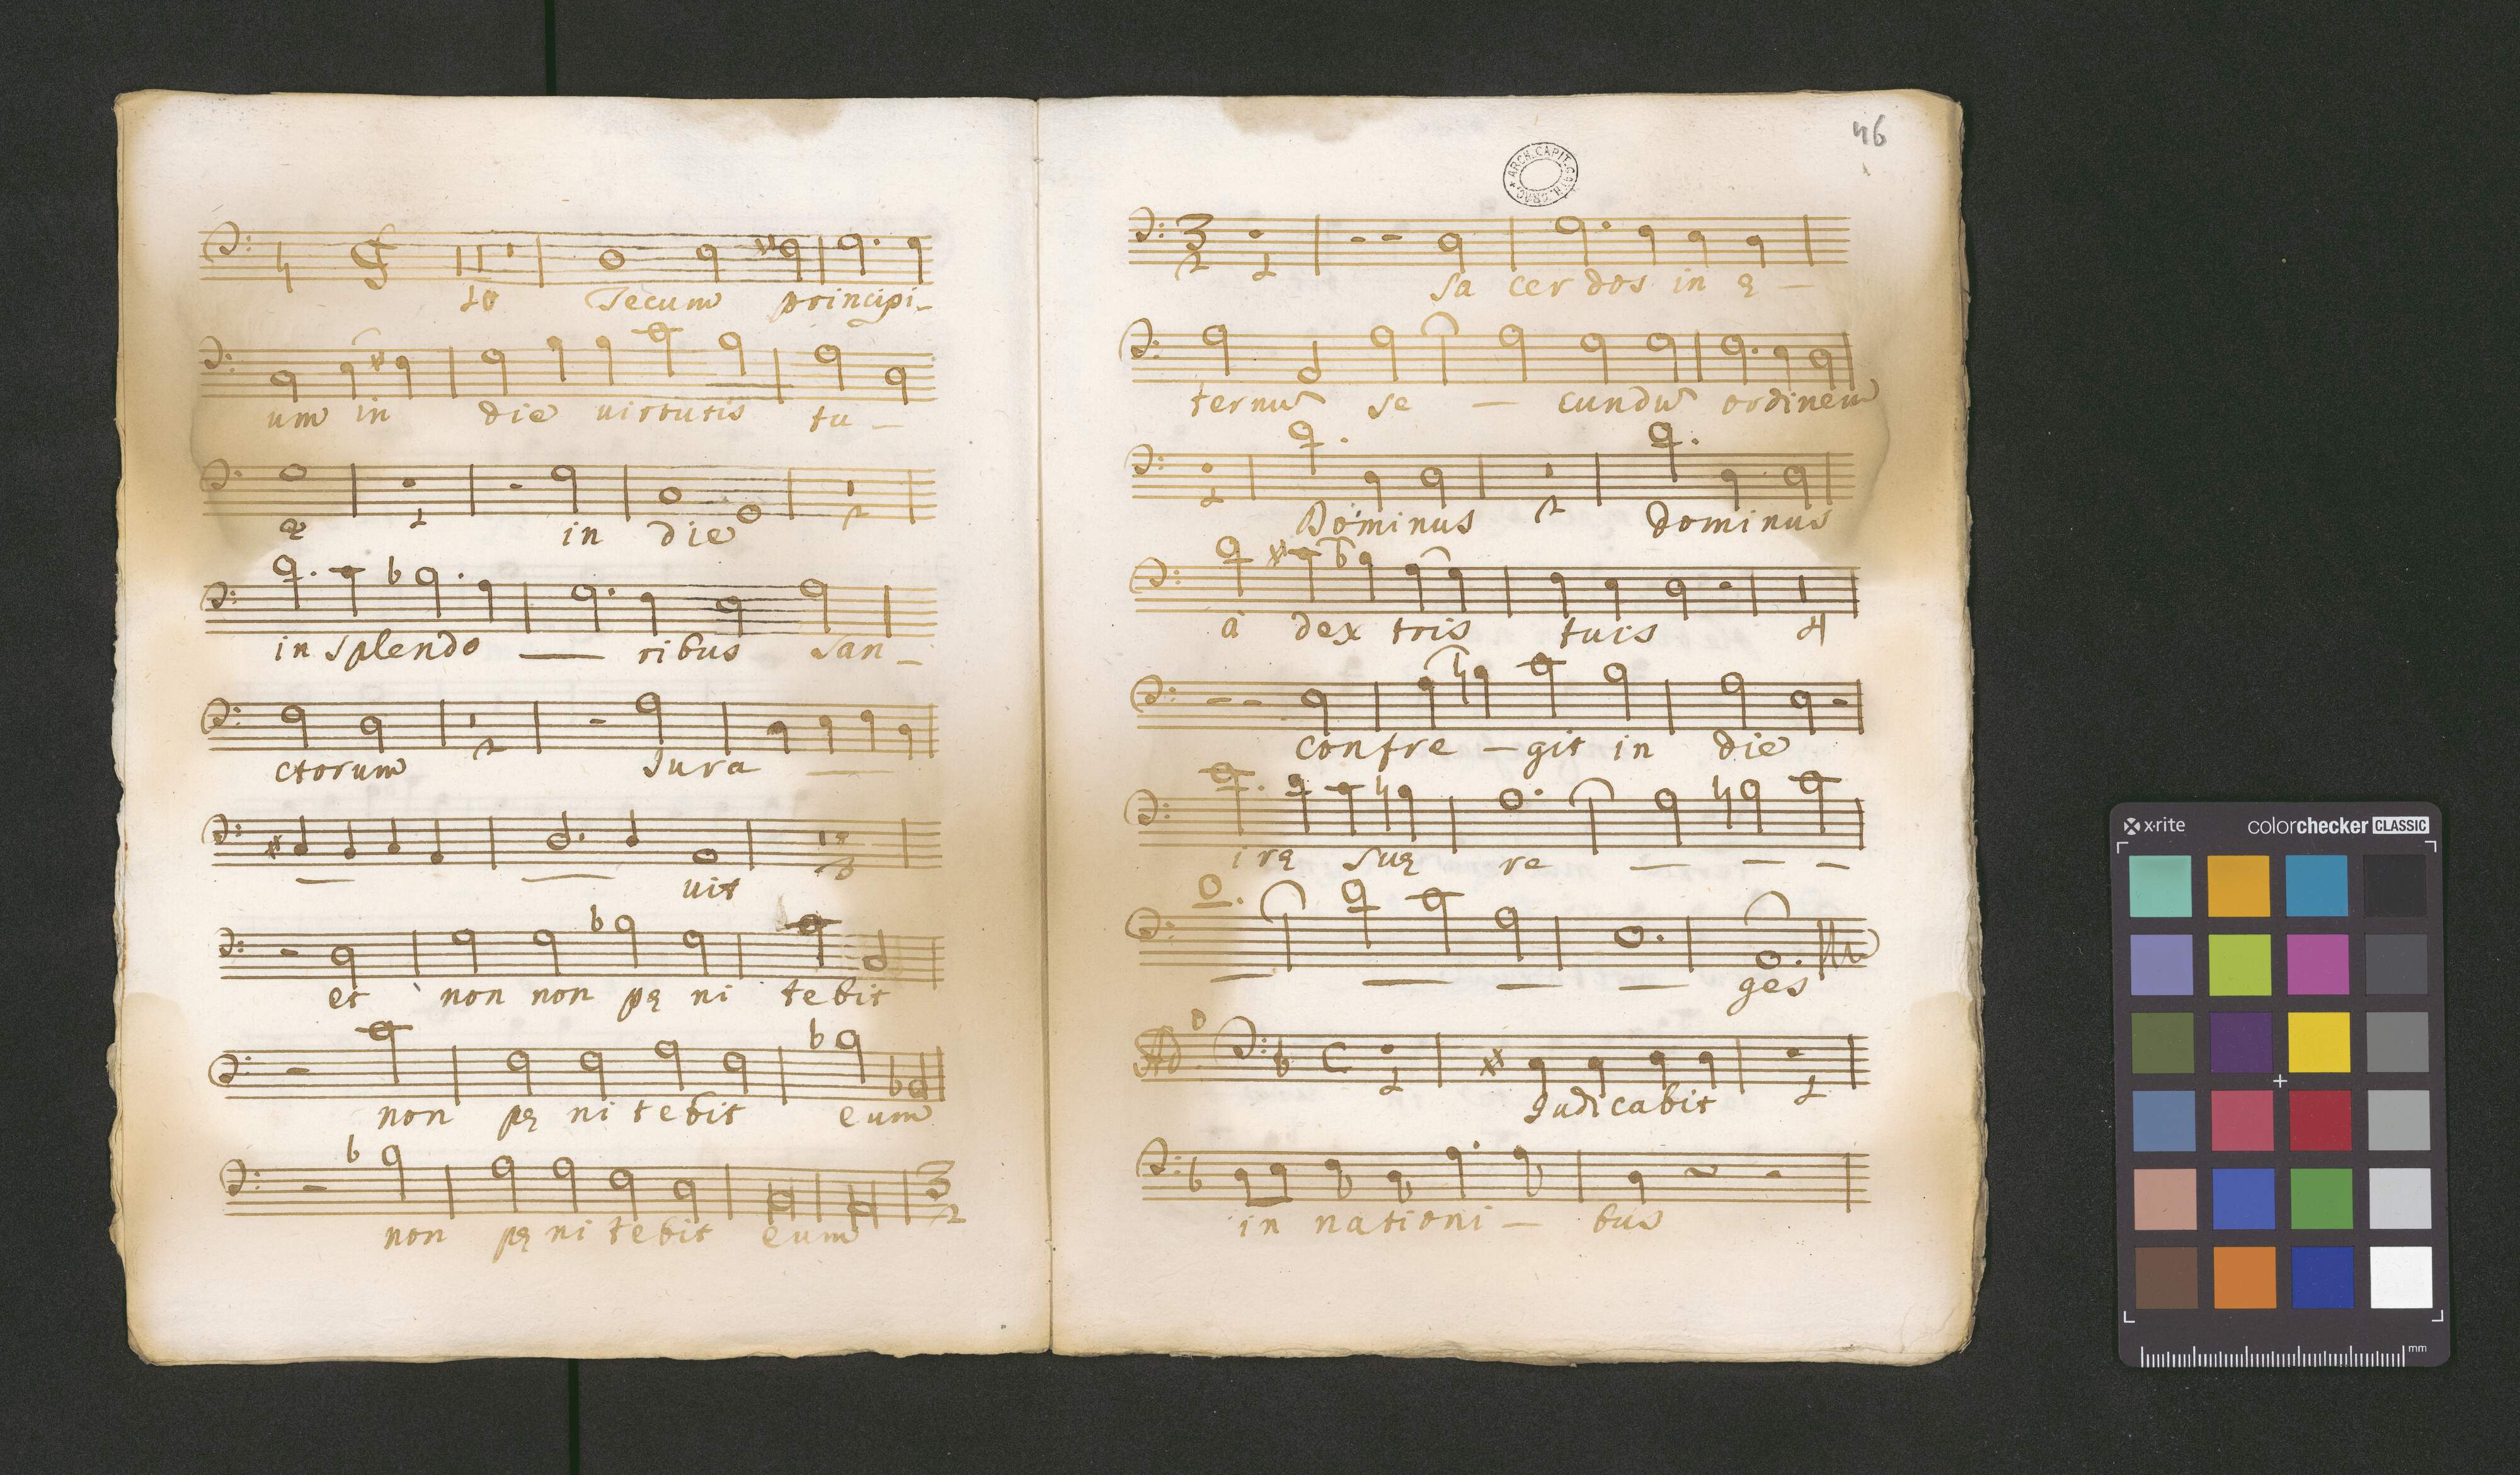 10 Tecum principi-
um in die uirtutis tu -
ę 1 in die 2
in splendo — ribus san -
ctorum 2 Jura —
— — uit 3
et non non pę ni tebit
non pę ni tebit eum
non pę ni tebit eum
3
2
46
ARCH. CAPIT. CATH. CRAC.
3
2
1 Sa cer dos in ę —
ternũ se — cundũ ordinem
1 Dominus 2 dominus
à dex tris tuis 4
confre - git in die
irę suę re — — —
— — — — ges
1 Judicabit 1
in nationi — bus
x-rite colorchecker CLASSIC
mm